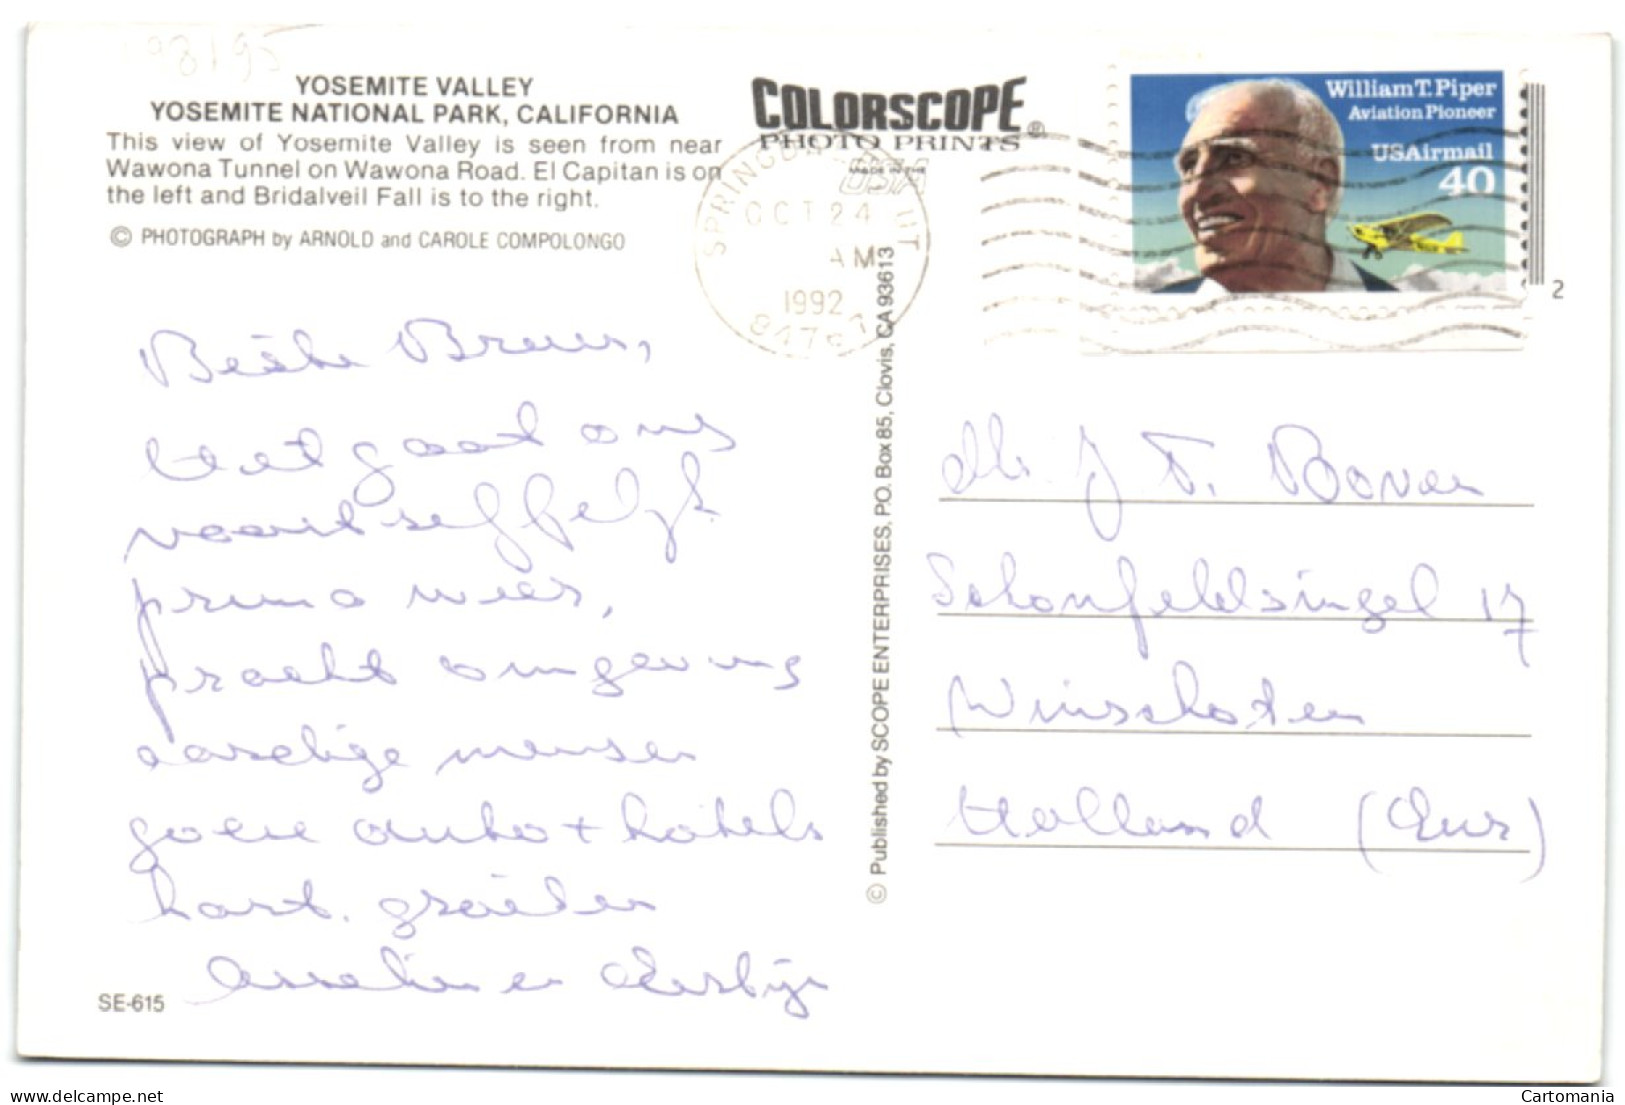 198195
YOSEMITE VALLEY
YOSEMITE NATIONAL PARK, CALIFORNIA
This view of Yosemite Valley is seen from near
Wawona Tunnel on Wawona Road. El Capitan is on
the left and Bridalveil Fall is to the right.
© PHOTOGRAPH by ARNOLD and CAROLE COMPOLONGO
COLORSCOPE®
PHOTO PRINTS
MADE IN THE
USA
SPRINGDA UT
OCT 24
AM
1992
William T. Piper
Aviation Pioneer
USAirmail
40
2
Beste
het gaat ons
voortreffelijk
prima weer,
pracht omgeving
aardige mensen
goeie auto + hotels
hart. groeten
en
SE-615
© Published by SCOPE ENTERPRISES, P.O. Box 85, Clovis, CA 93613
J T. Boven
Schonfeldsingel 17
Winschoten
Holland (Eur)
www.delcampe.net
Cartomania